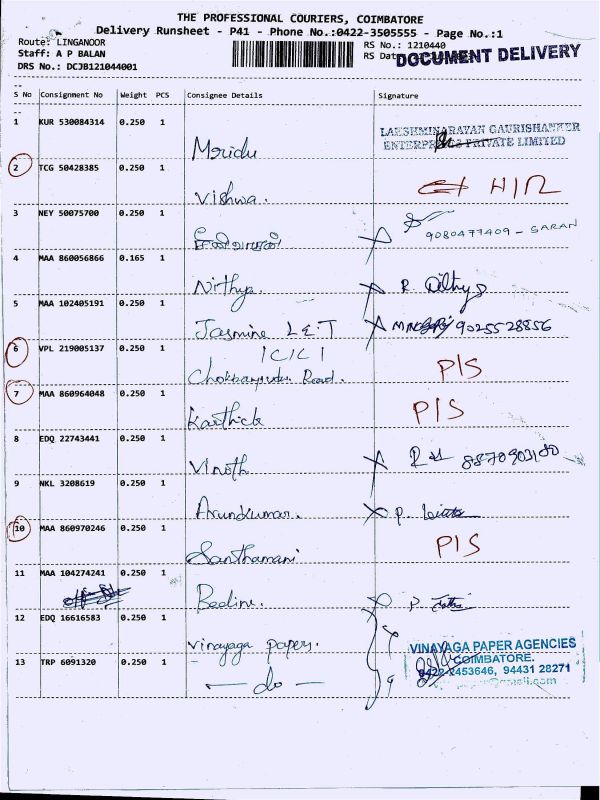 THE PROFESSIONAL COURIERS, COIMBATORE
Delivery Runsheet - P41 - Phone No.:0422-3505555 - Page No.:1
Route: LINGANOOR
RS No.: 1210440
Staff: A P BALAN
RS Dat
DOCUMENT DELIVERY
DRS No.: DCJB121044001
S No Consignment No Weight PCS Consignee Details Signature
1 KUR 530084314 0.250 1 Mridu
LAKSHMINARAYAN GAURISHANKER
ENTERPRISES PRIVATE LIMITED
2 TCG 50428385 0.250 1 Vishwa. H/R
3 NEY 50075700 0.250 1
9080477409 - SARAN
4 MAA 860056866 0.165 1 Nithya. R
5 MAA 102405191 0.250 1 Jasmine L&T 9025528856
6 VPL 219005137 0.250 1 ICICI
Road. P/S
7 MAA 860964048 0.250 1 Karthick P/S
8 EDQ 22743441 0.250 1 Vinoth
9 NKL 3208619 0.250 1 Arundkumar. P.
10 MAA 860970246 0.250 1 Santhamani P/S
11 MAA 104274241 0.250 1 P.
12 EDQ 16616583 0.250 1 Vinayaga papers.
VINAYAGA PAPER AGENCIES
COIMBATORE.
13 TRP 6091320 0.250 1 — do —
0422-2453646, 94431 28271
@gmail.com